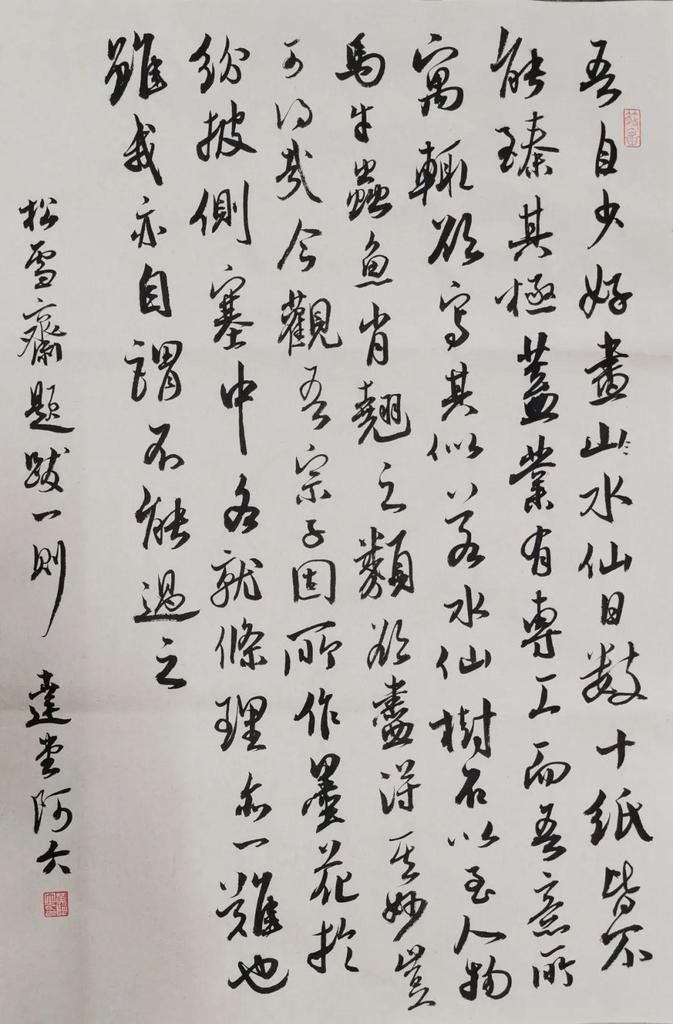 吾自少好畫山水仙日数十紙皆不
能臻其極蓋業有專工而吾意所
寓輒欲寫其似若水仙樹石以至人物
馬牛蟲魚肖翹之類欲盡得其妙豈
可得哉今觀吾宗子固所作墨花於
紛披側塞中各就條理亦一難也
雖我亦自謂不能過之
松雪齋題跋一則 達堂阿大